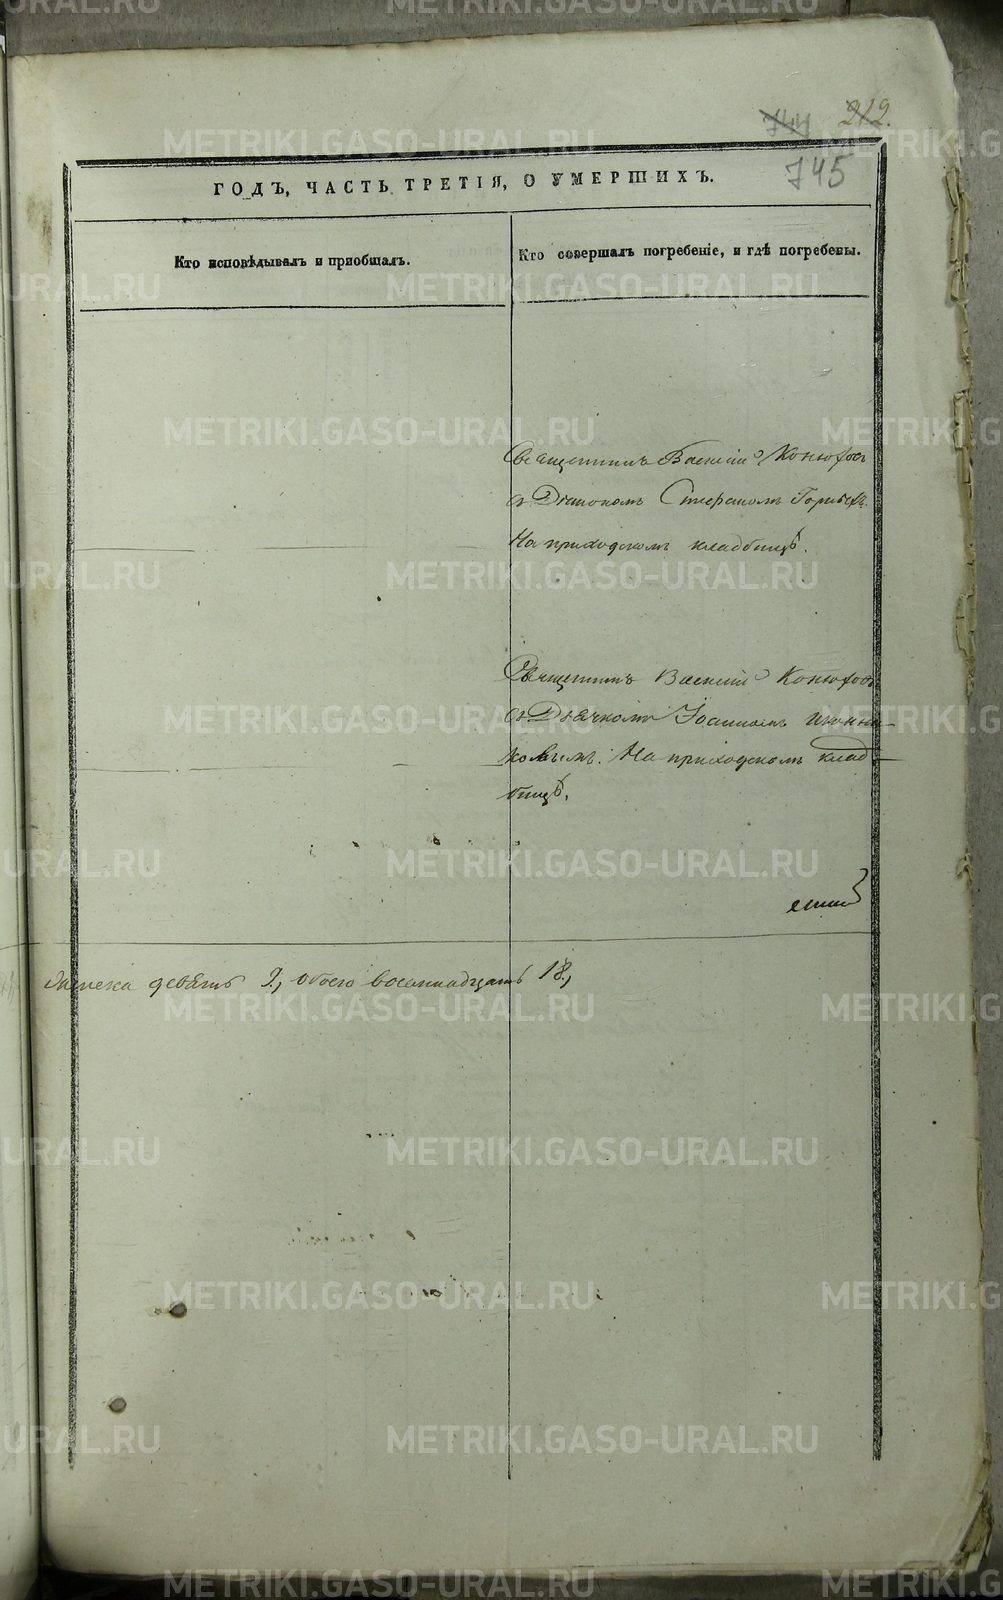 212.
744
745
ГОДЪ, ЧАСТЬ ТРЕТІЯ, О УМЕРШИХЪ.
Кто исповѣдывалъ и пріобщалъ.
Кто совершалъ погребеніе, и гдѣ погребены.
Священникъ Василій Конюхов
съ Діакономъ Стефаномъ
На приходскомъ кладбищѣ.
Священникъ Василій Конюховъ
съ Дьячкомъ Іоанномъ Иконни-
ковымъ. На приходскомъ клад-
бищѣ.
женска девять 9., обоего восемнадцать 18.,
METRIKI.GASO-URAL.RU